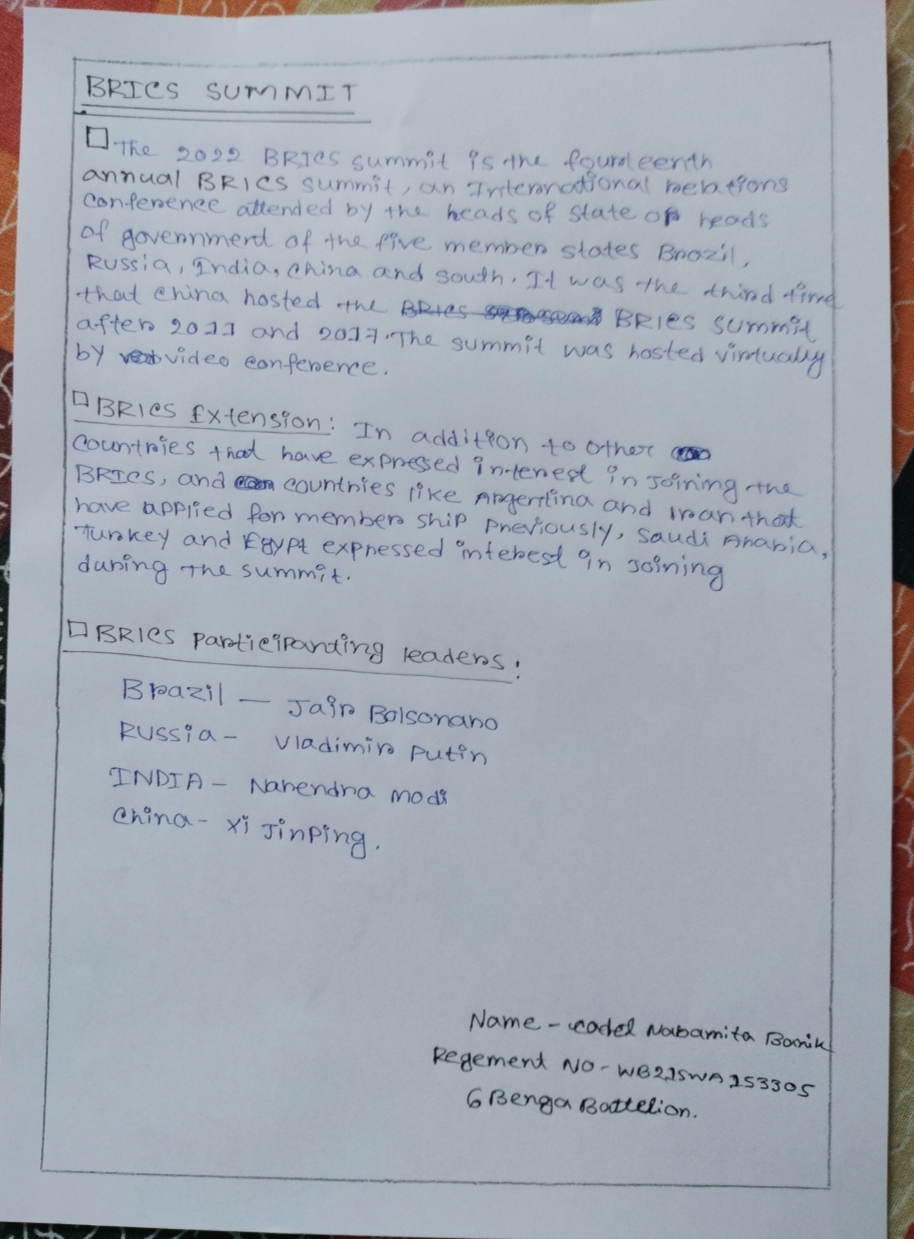 BRICS SUMMIT
The 2022 BRICS summit is the fourteenth
annual BRICS summit, an International relations
Conference attended by the heads of state or heads
of government of the five member states Brazil,
Russia, India, china and south. It was the third time
that china hosted the BRICS summit
after 2011 and 2017. The summit was hosted virtually
by video conference.
BRICS Extension: In addition to other
countries that have expressed interest in joining the
BRICS, and countries like Argentina and Iran that
have applied for member ship previously, Saudi Arabia,
Turkey and Egypt expressed interest in joining
during the summit.
BRICS participanting leaders:
Brazil - Jair Bolsonaro
Russia - Vladimir Putin
INDIA - Narendra modi
china - xi Jinping.
Name - cadet Nabamita Banik
Regement NO - WB21SWA153305
6 Benga Battelion.